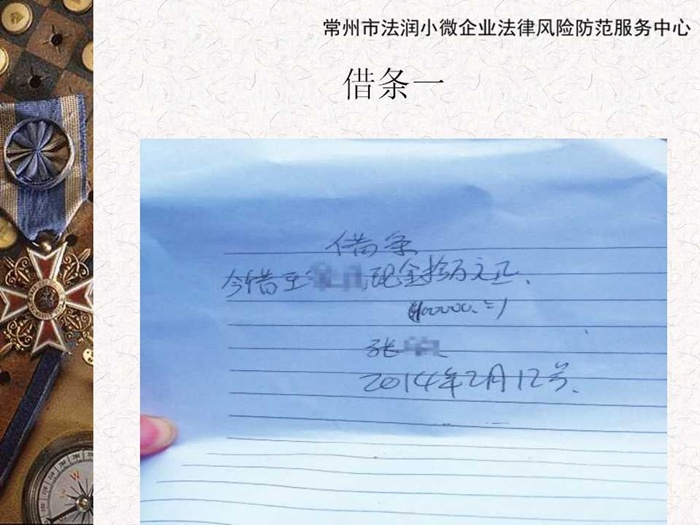 常州市法润小微企业法律风险防范服务中心
借条一
借条
今借至 现金拾万元正.
(100000.=)
张
2014年2月12号.